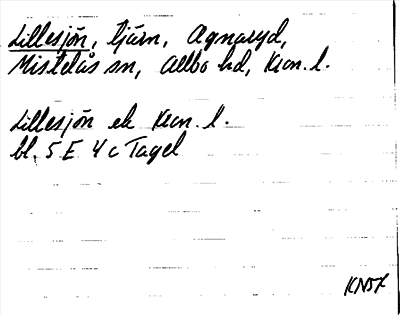 Lillesjön, tjärn, Agnaryd,
Mistelås sn, Allbo hd, Kron. l.
Lillesjön ek Kron. l.
bl. 5 E 4 c Tagel
KN57